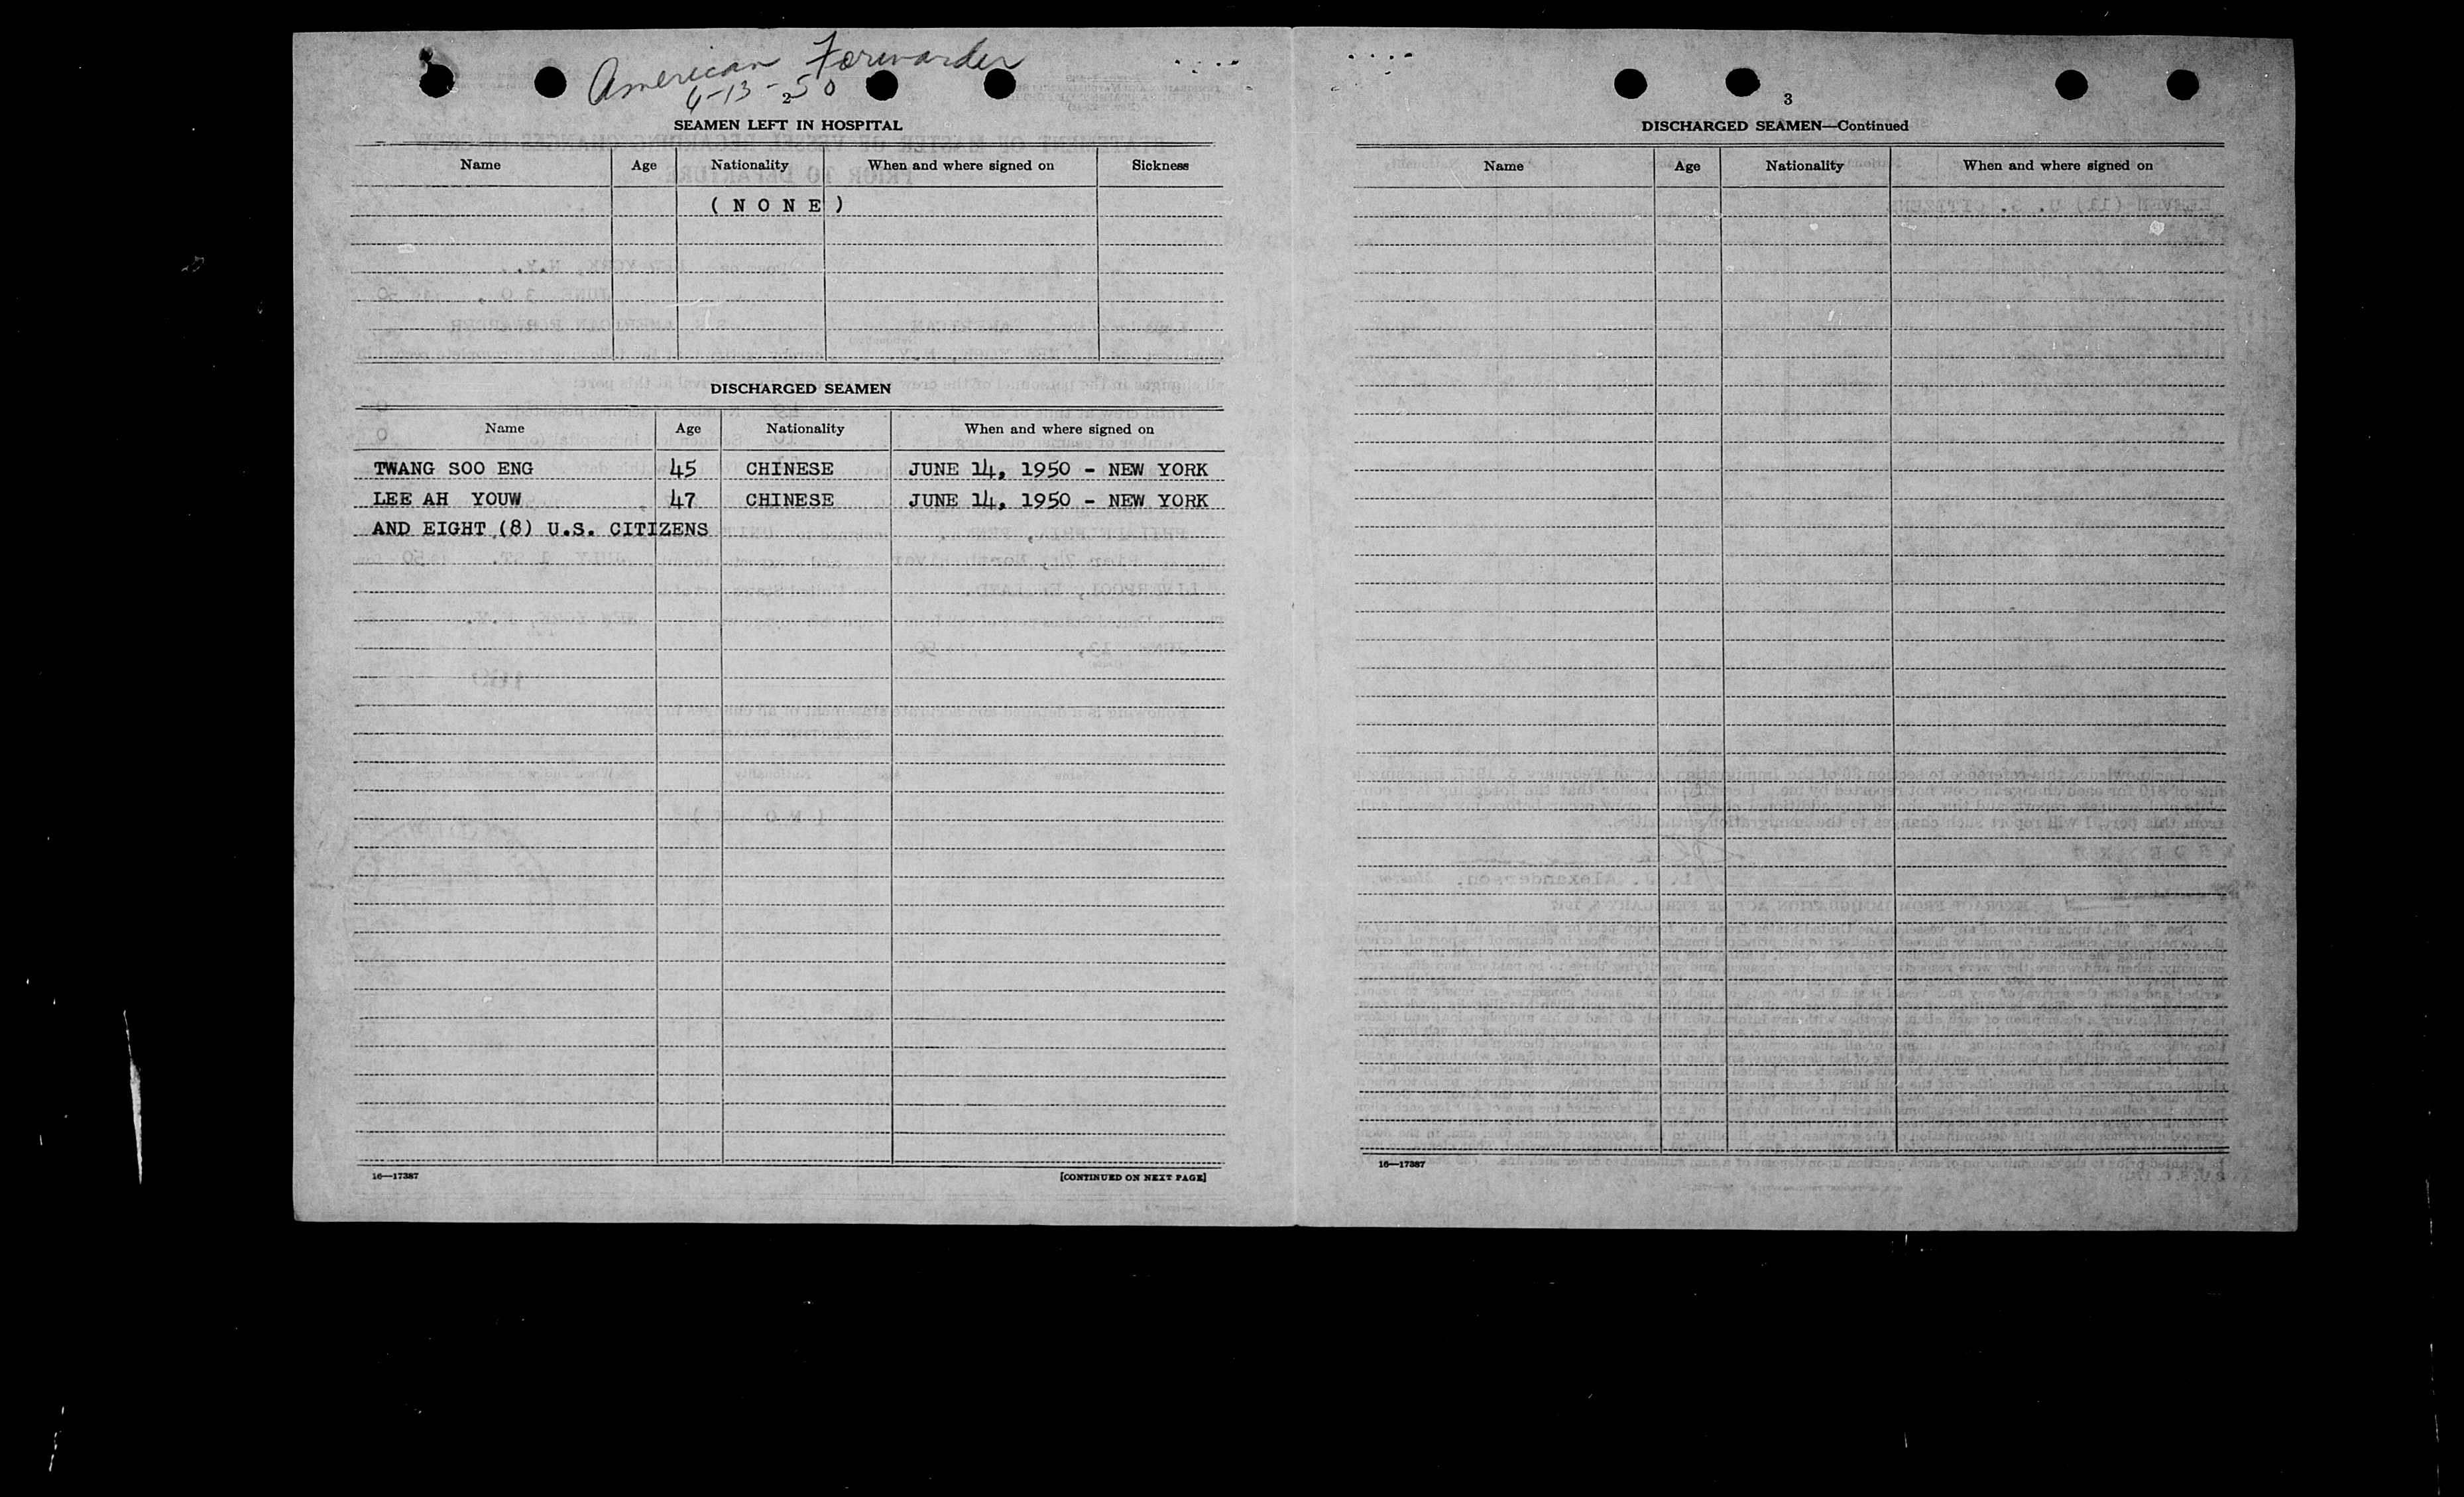 American Forwarder
6-13-50
2
SEAMEN LEFT IN HOSPITAL
Name Age Nationality When and where signed on Sickness
( N O N E )
DISCHARGED SEAMEN
Name Age Nationality When and where signed on
TWANG SOO ENG 45 CHINESE JUNE 14, 1950 - NEW YORK
LEE AH YOUW 47 CHINESE JUNE 14, 1950 - NEW YORK
AND EIGHT (8) U.S. CITIZENS
16—17387 [CONTINUED ON NEXT PAGE]
3
DISCHARGED SEAMEN—Continued
Name Age Nationality When and where signed on
16—17387